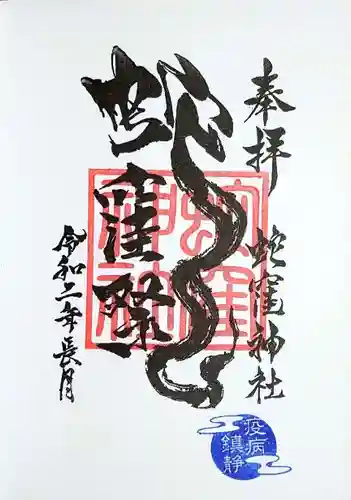 奉拝
蛇窪神社
蛇窪祭
蛇窪神社
令和二年長月
疫病
鎮静